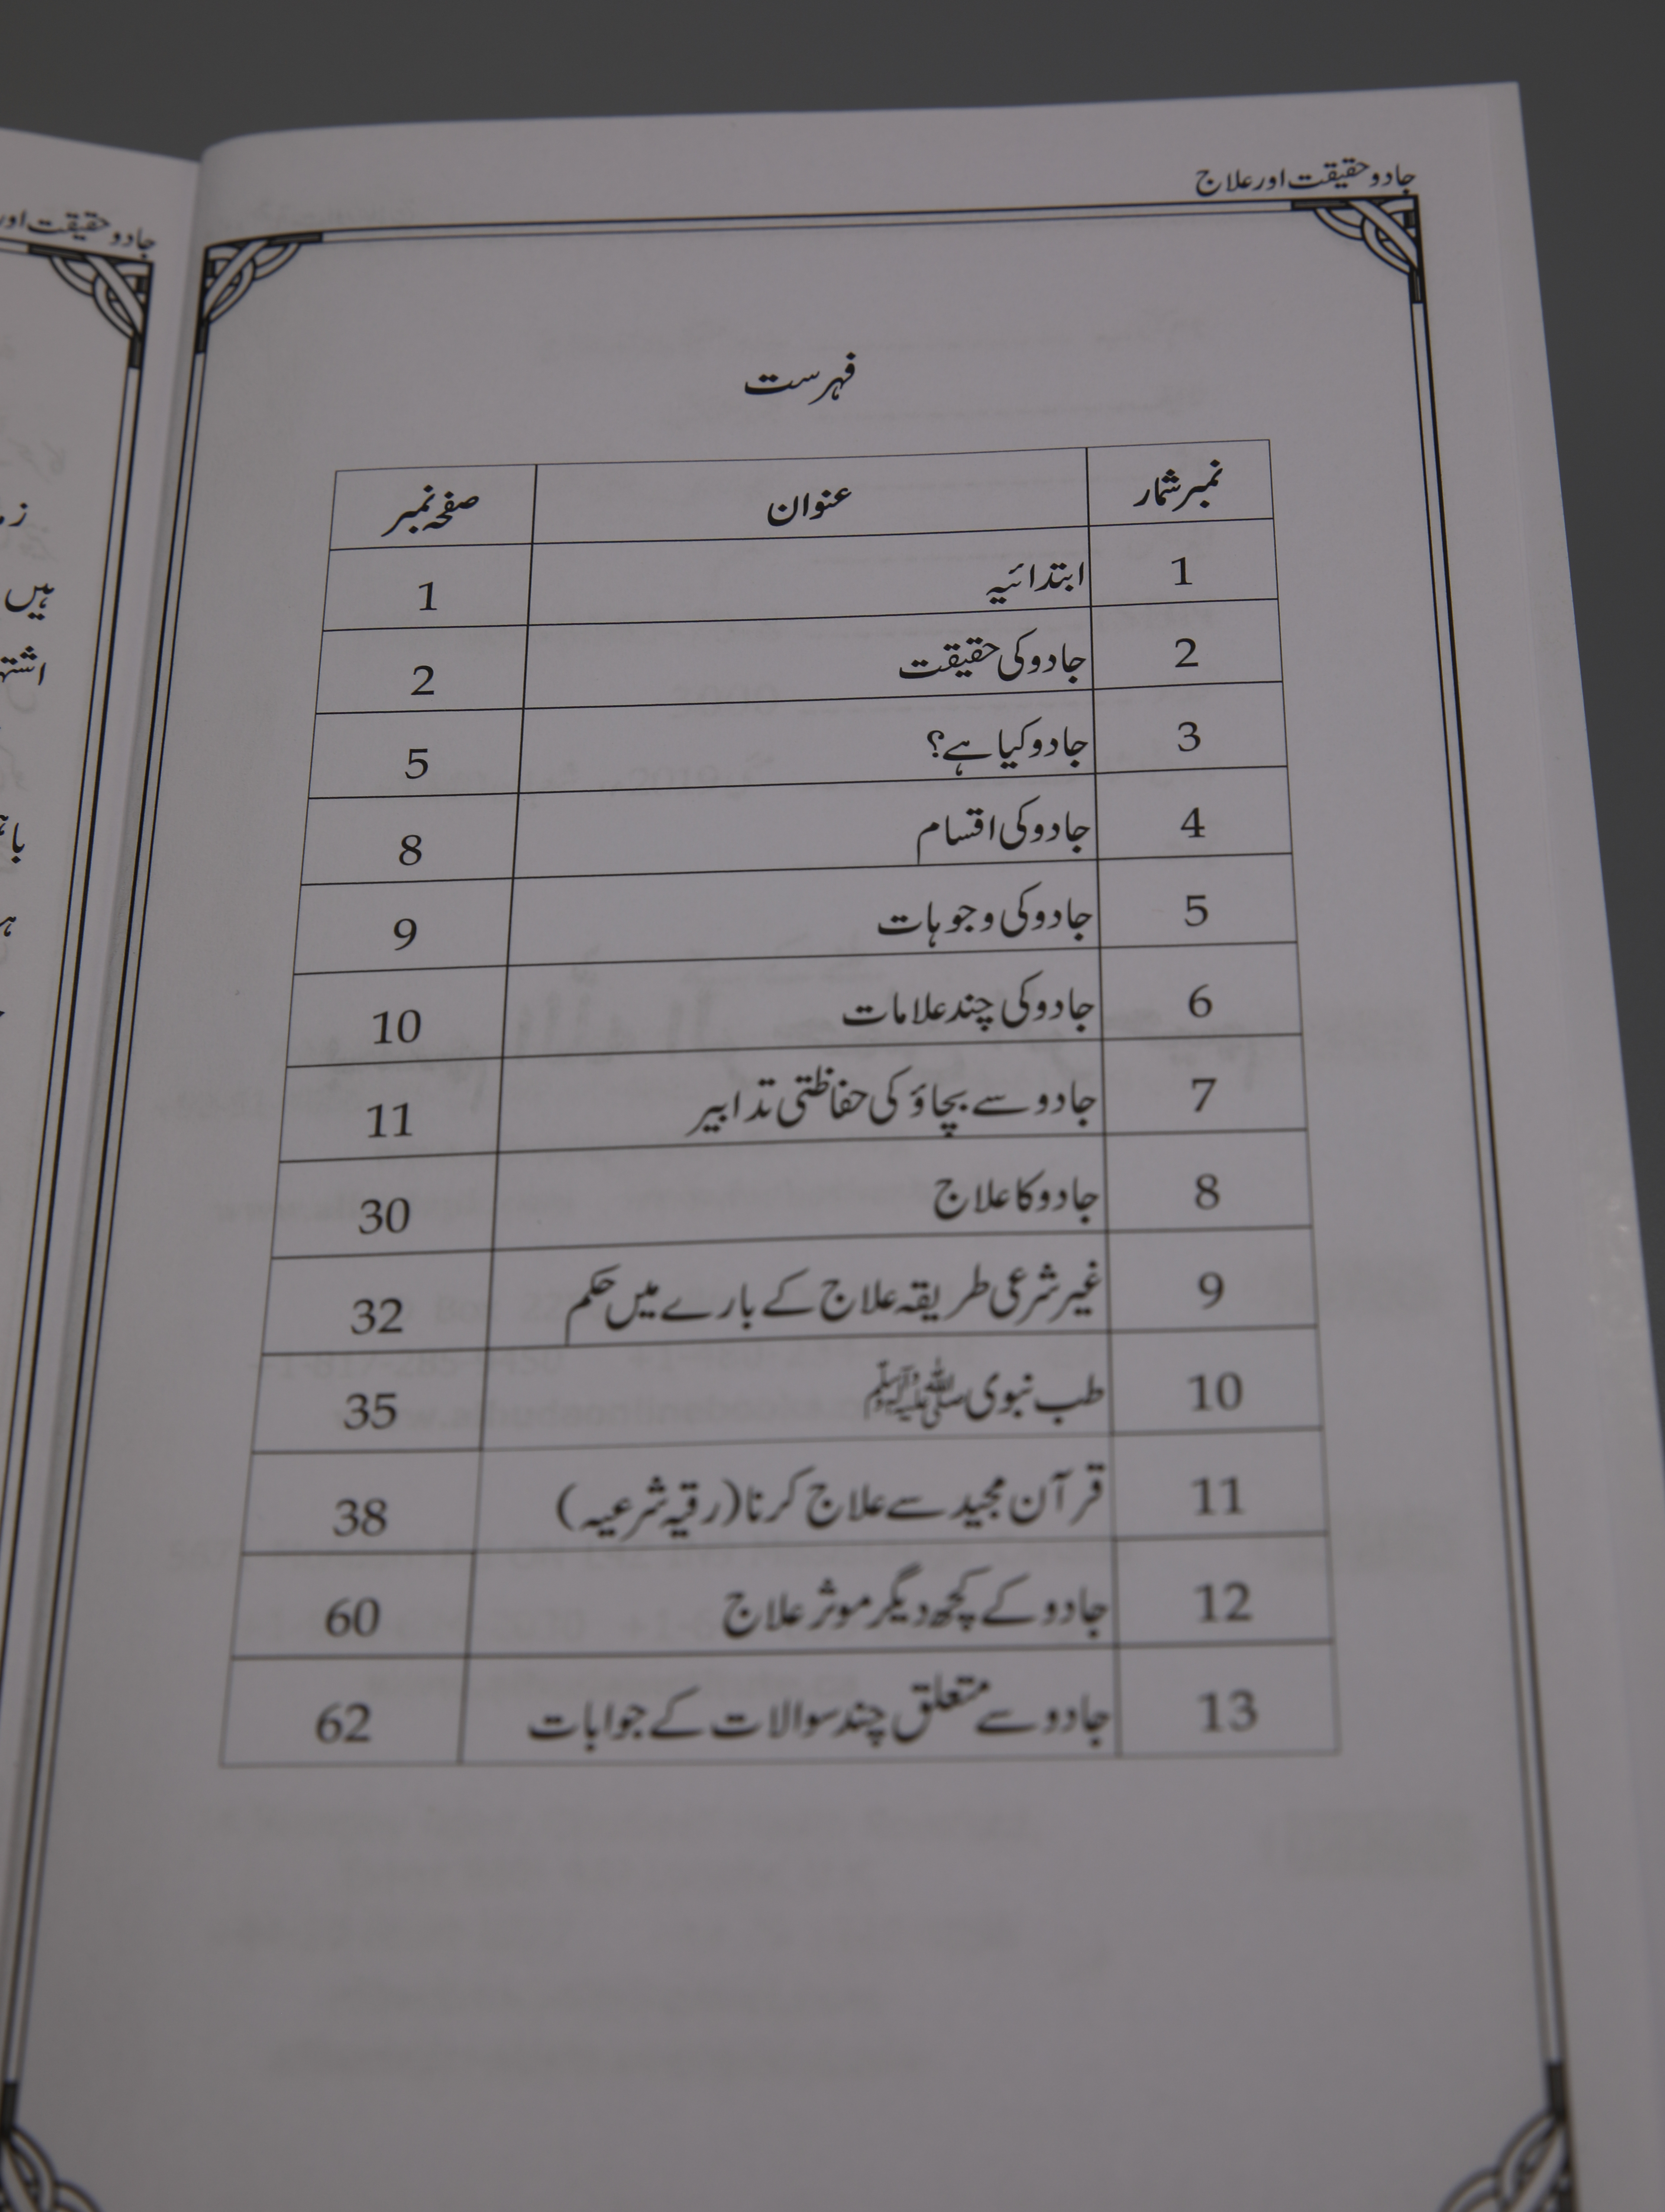 جادو حقیقت اور علاج
فہرست
نمبر شمار عنوان صفحہ نمبر
1 ابتدائیہ 1
2 جادو کی حقیقت 2
3 جادو کیا ہے؟ 5
4 جادو کی اقسام 8
5 جادو کی وجوہات 9
6 جادو کی چند علامات 10
7 جادو سے بچاؤ کی حفاظتی تدابیر 11
8 جادو کا علاج 30
9 غیر شرعی طریقہ علاج کے بارے میں حکم 32
10 طب نبوی ﷺ 35
11 قرآن مجید سے علاج کرنا (رقیہ شرعیہ) 38
12 جادو کے کچھ دیگر موثر علاج 60
13 جادو سے متعلق چند سوالات کے جوابات 62
جادو حقیقت اور
ہیں